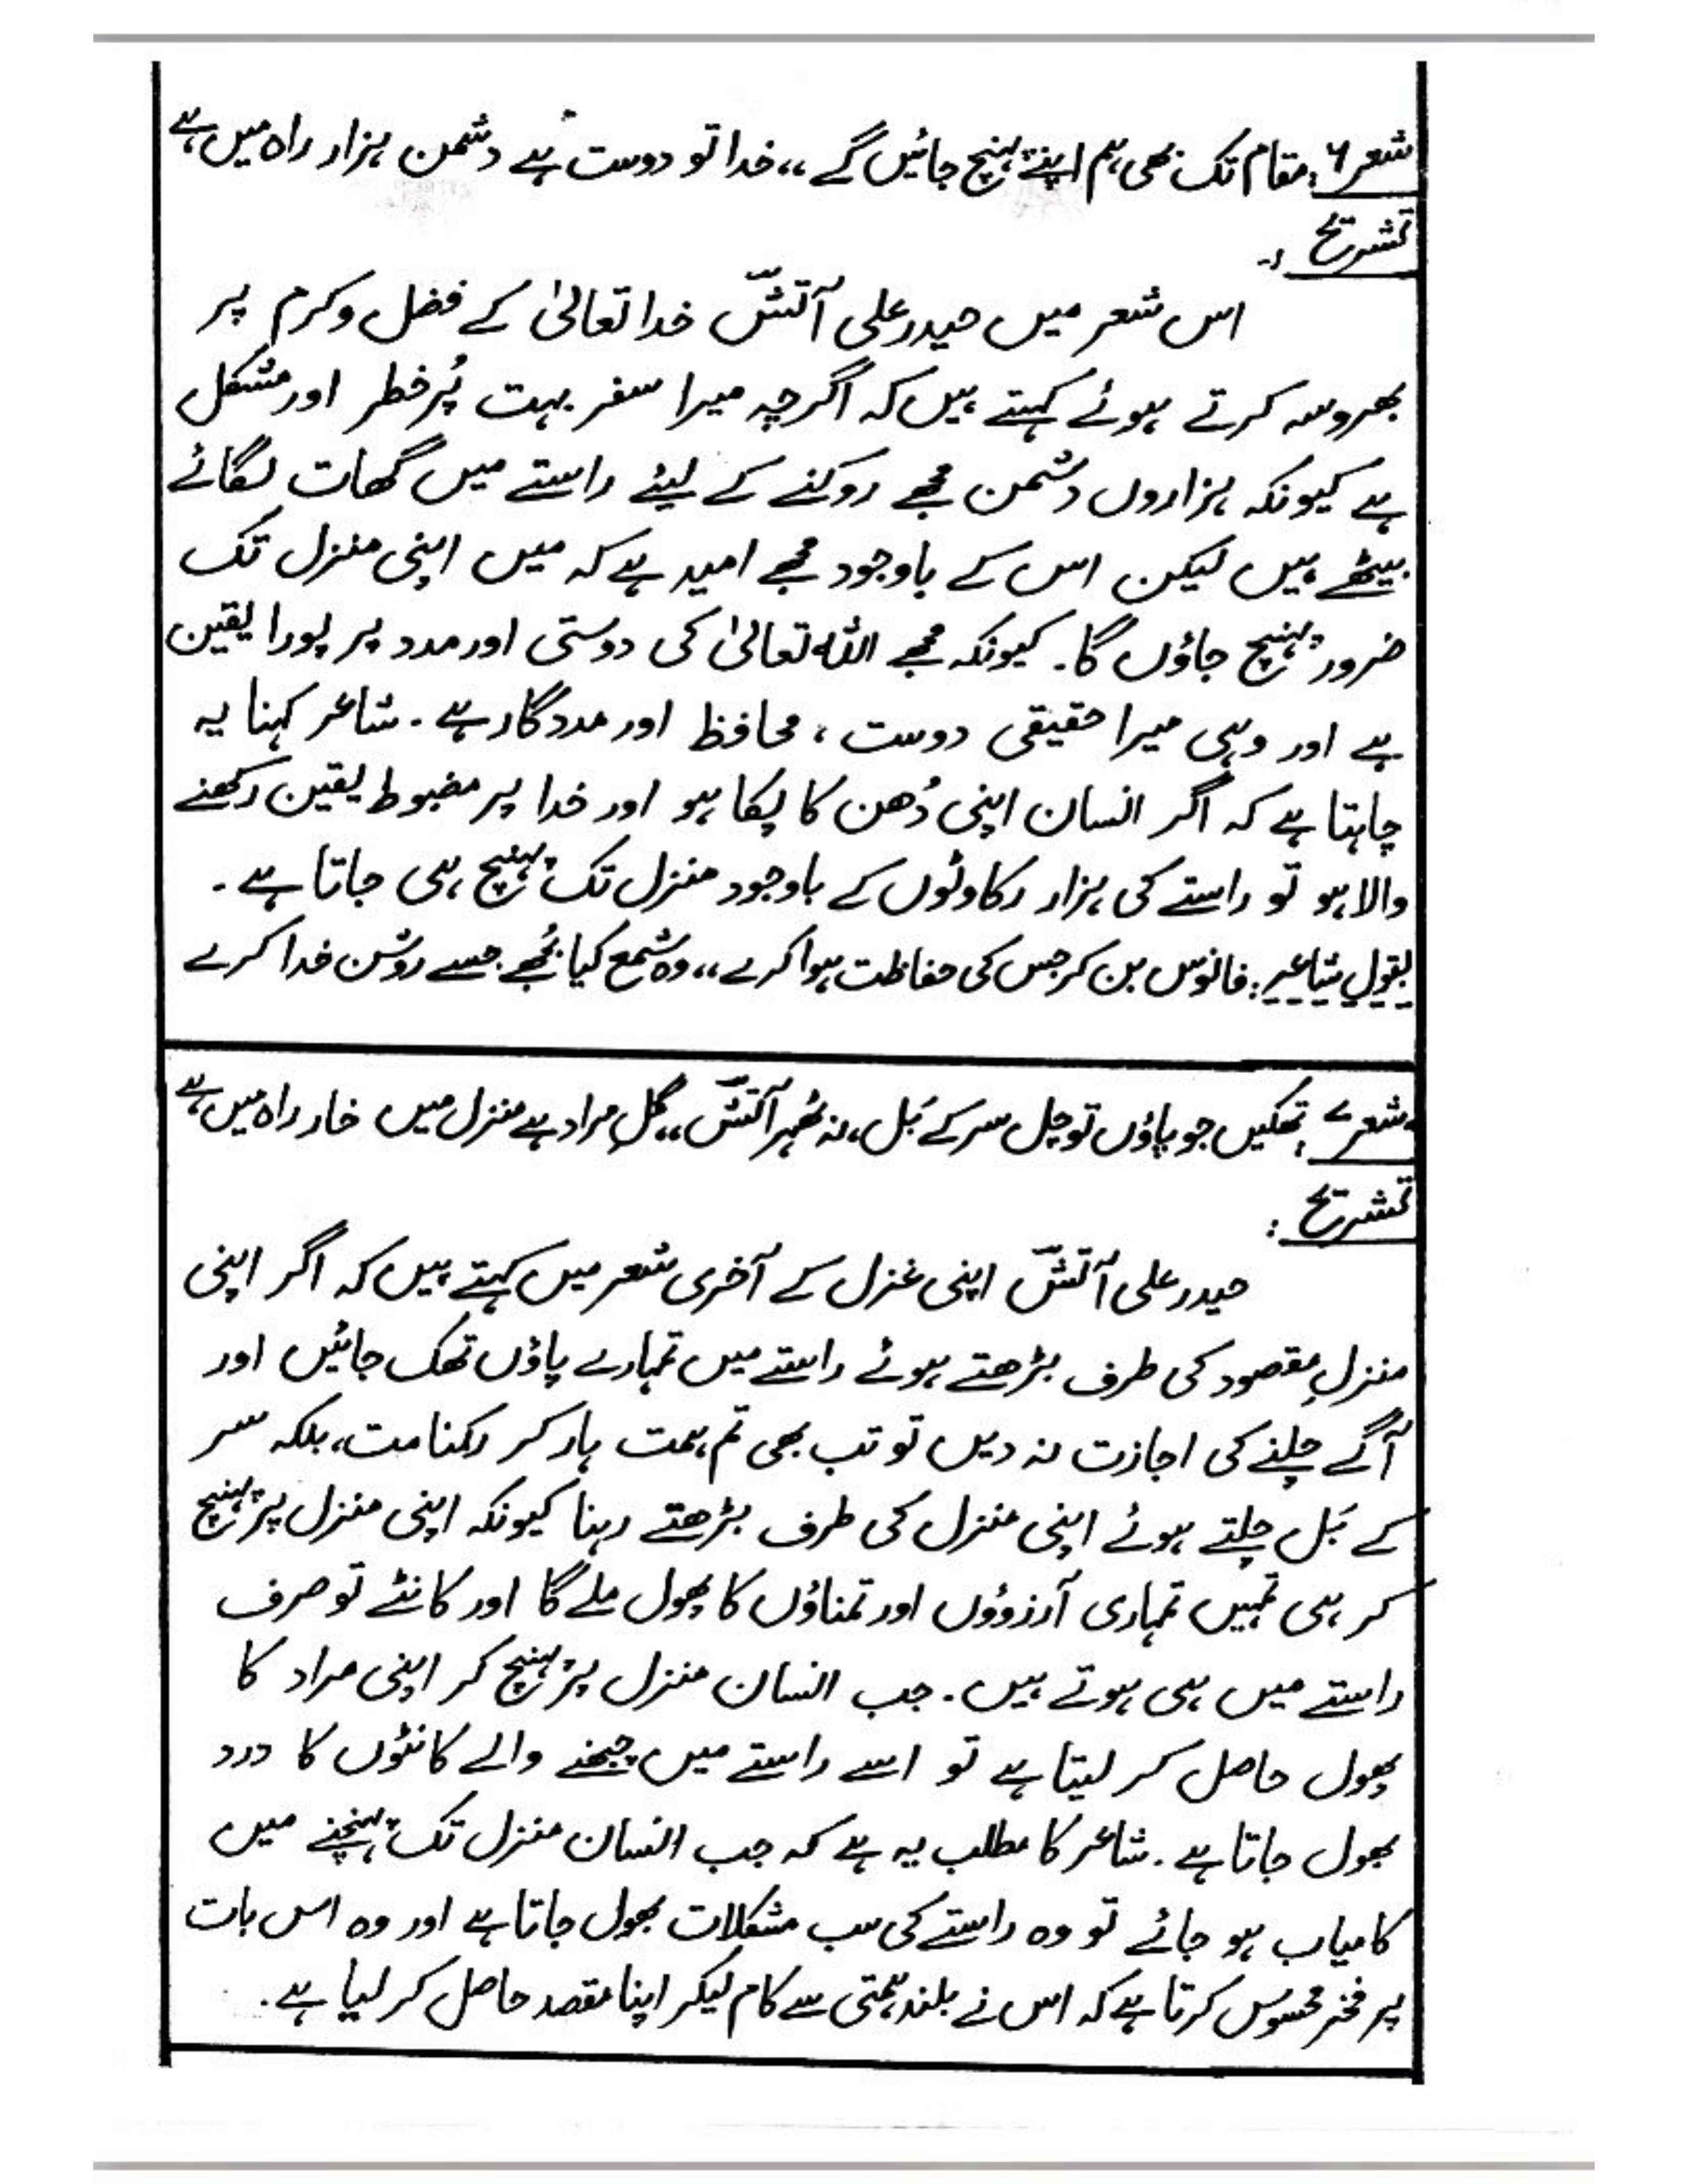 شعر ۶: مقام تک بھی ہم اپنے پہنچ جائیں گے ،، خدا تو دوست ہے دشمن ہزار راہ میں ہے
تشریح :-
اس شعر میں حیدر علی آتشؔ خدا تعالیٰ کے فضل و کرم پر
بھروسہ کرتے ہوئے کہتے ہیں کہ اگرچہ میرا سفر بہت پُر خطر اور مشکل
ہے کیونکہ ہزاروں دشمن مجھے روکنے کے لیئے راستے میں گھات لگائے
بیٹھے ہیں لیکن اس کے باوجود مجھے امید ہے کہ میں اپنی منزل تک
ضرور پہنچ جاؤں گا۔ کیونکہ مجھے اللہ تعالیٰ کی دوستی اور مدد پر پورا یقین
ہے اور وہی میرا حقیقی دوست ، محافظ اور مددگار ہے ۔ شاعر کہنا یہ
چاہتا ہے کہ اگر انسان اپنی دُھن کا پکا ہو اور خدا پر مضبوط یقین رکھنے
والا ہو تو راستے کی ہزار رکاوٹوں کے باوجود منزل تک پہنچ ہی جاتا ہے ۔
بقول شاعر: فانوس بن کر جس کی حفاظت ہوا کرے ،، وہ شمع کیا بُجھے جسے روشن خدا کرے
شعر ۷: تھکیں جو پاؤں تو چل سر کے بَل، نہ ٹھہر آتشؔ ،، گلِ مراد ہے منزل میں خار راہ میں ہے
تشریح :
حیدر علی آتشؔ اپنی غزل کے آخری شعر میں کہتے ہیں کہ اگر اپنی
منزلِ مقصود کی طرف بڑھتے ہوئے راستے میں تمہارے پاؤں تھک جائیں اور
آگے چلنے کی اجازت نہ دیں تو تب بھی تم ہمت ہار کر رکنا مت، بلکہ سر
کے بَل چلتے ہوئے اپنی منزل کی طرف بڑھتے رہنا کیونکہ اپنی منزل پر پہنچ
کر ہی تمہیں تمہاری آرزوؤں اور تمناؤں کا پھول ملے گا اور کانٹے تو صرف
راستے میں ہی ہوتے ہیں ۔ جب انسان منزل پر پہنچ کر اپنی مراد کا
پھول حاصل کر لیتا ہے تو اسے راستے میں چبھنے والے کانٹوں کا درد
بھول جاتا ہے ۔ شاعر کا مطلب یہ ہے کہ جب انسان منزل تک پہنچنے میں
کامیاب ہو جائے تو وہ راستے کی سب مشکلات بھول جاتا ہے اور وہ اس بات
پر فخر محسوس کرتا ہے کہ اس نے بلند ہمتی سے کام لیکر اپنا مقصد حاصل کر لیا ہے ۔